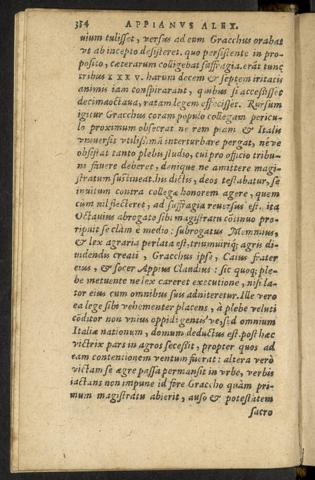 334 APPIANVS ALEX.
uium tulisset, versus ad eum Gracchus orabat
vt ab incepto desisteret. quo persistente in pro-
posito, cæterarum colligebat suffragia. erāt tunc
tribus XXXV. harum decem & septem iritatis
animis iam conspirarant, quibus si accessisset
decimaoctaua, ratam legem effecisset. Rursum
igitur Gracchus coram populo collegam pericu-
lo proximum obsecrat ne rem piam & Italis
vniuersis vtilissimā interturbare pergat, néve
obsistat tanto plebis studio, cui pro officio tribu-
ni fauere deberet, denique ne amittere magi-
stratum sustineat. his dictis, deos testabatur, se
inuitum contra collegæ honorem agere, quem
cum nil flecteret, ad suffragia reuersus est. ita
Octauius abrogato sibi magistratu cōtinuo pro-
ripuit se clàm è medio: subrogatus Memnius,
& lex agraria perlata est, triumuiríq; agris di-
uidendis creati, Gracchus ipse, Caius frater
eius, & socer Appius Claudius: sic quoq; ple-
be metuente ne lex careret executione, nisi la-
tor eius cum omnibus suis adniteretur. Ille vero
ea lege sibi vehementer placens, à plebe veluti
cōditor non vnius oppidi gentisve, sed omnium
Italiæ nationum, domum deductus est. post hæc
victrix pars in agros secessit, propter quos ad
eam contentionem ventum fuerat: altera verò
victam se ægre passa permansit in vrbe, verbis
iactans non impune id fore Graccho quàm pri-
mum magistratu abierit, auso & potestatem
sacro